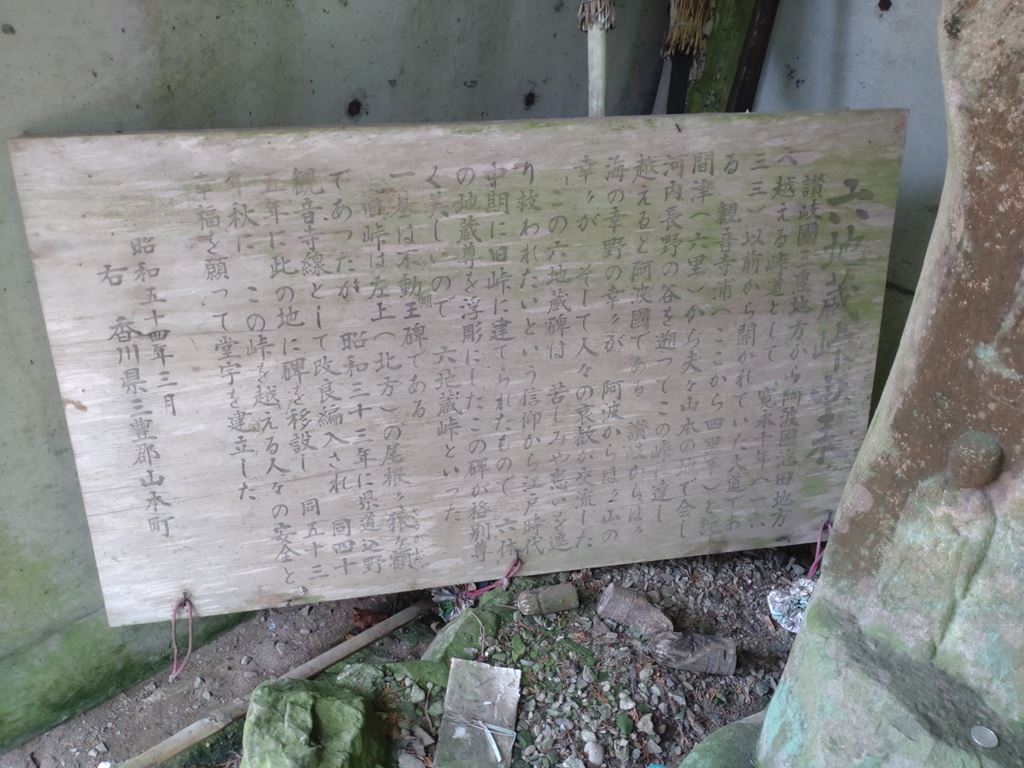 六地蔵峠
讃岐國三豊地方から 阿波國 田地方
へ越える峠道として 寛永十年(一六
三三)以前から開かれていた大道であ
る 観音寺浦(ここから四四 )と
間津(六里)から夫々山本の で合し
河内長野の谷を遡ってこの峠に達し
越えると阿波國である 讃岐からは〝
海の幸野の幸〟が 阿波からは〝山の
幸〟が そして人々の哀歓が交流した
この六地蔵碑は 苦しみや患いを
り救われたいという信仰から江戸時代
中期に旧峠に建てられたもので 六体
の地蔵尊を浮彫にしたこの碑が格別尊
く美しいので 六地蔵峠といった
一基は不動王碑である
旧峠は左上(北方)の尾根
であったが 昭和三十三年に県道込野
観音寺線として改良編入され 同四十
五年に此の地に碑を移設し 同五十三
年秋に この峠を越える人々の安全と
幸福を願って堂宇を建立した
昭和五十四年三月
右 香川県三豊郡山本町